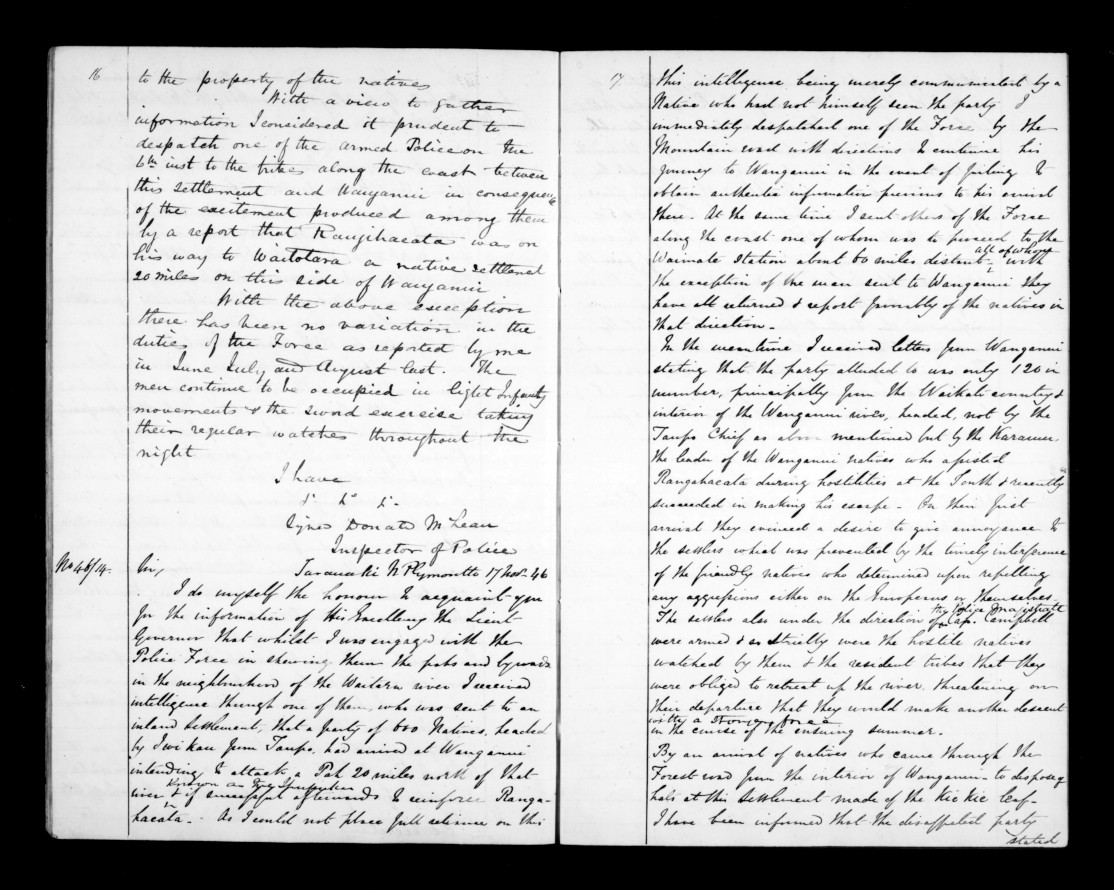 16
to the property of the natives
With a view to gather
information I considered it prudent to
despatch one of the armed Police on the
6th inst to the tribes along the coast between
this settlement and Wanganui in consequence
of the excitement produced among them
by a report that Rangihaeata was on
his way to Waitotara a native settlement
20 miles on this side of Wanganui
With the above exception
there has been no variation in the
duties of the Force as reported by me
in June July and August last. The
men continue to be occupied in light Infantry
movements & the sword exercise taking
their regular watches throughout the
night
I have
&c &c &c
Signed Donald McLean
Inspector of Police
No 46/14. Sir, Taranaki N Plymouth 17 Novr 46
I do myself the honour to acquaint you
for the information of His Excellency the Lieut
Governor that whilst I was engaged with the
Police Force in shewing them the pahs and byroads
in the neighbourhood of the Waitara river I received
intelligence through one of them, who was sent to an
inland settlement, that a party of 600 Natives, headed
by Iwikau from Taupo, had arrived at Wanganui
intending to attack a Pah 20 miles north of that
river known as
& if successful afterwards to reinforce Ranga-
haeata. - As I could not place full reliance on this
17
this intelligence being merely communicated by a
Native who had not himself seen the party I
immediately despatched one of the Force by the
Mountain road with directions to continue his
journey to Wanganui in the event of failing to
obtain authentic information previous to his arrival
there. At the same time I sent others of the Force
along the coast one of whom was to proceed to the
Waimate Station about 60 miles distant, all of whom with
the exception of the man sent to Wanganui they
have all returned & report favorably of the natives in
that direction. -
In the meantime I received letters from Wanganui
stating that the party alluded to was only 120 in
number, principally from the Waikato country &
interior of the Wanganui river, headed, not by the
Taupo Chief as above mentioned but by the
the leader of the Wanganui natives who assisted
Rangahaeata during hostilities at the South & recently
succeeded in making his escape. - On their first
arrival they evinced a desire to give annoyance to
the settlers which was prevented by the timely interference
of the friendly natives who determined upon repelling
any aggressions either on the Europeans or themselves -
The settlers also under the direction of the Police Magistrate Cap. Campbell
were armed & so strictly were the hostile natives
watched by them & the resident tribes that they
were obliged to retreat up the river threatening on
their departure that they would make another descent
with a stronger force
in the course of the ensuing summer.
By an arrival of natives who came through the
Forest road from the interior of Wanganui to dispose of
hats at this settlement made of the Kie Kie leaf -
I have been informed that the disaffected party
stated